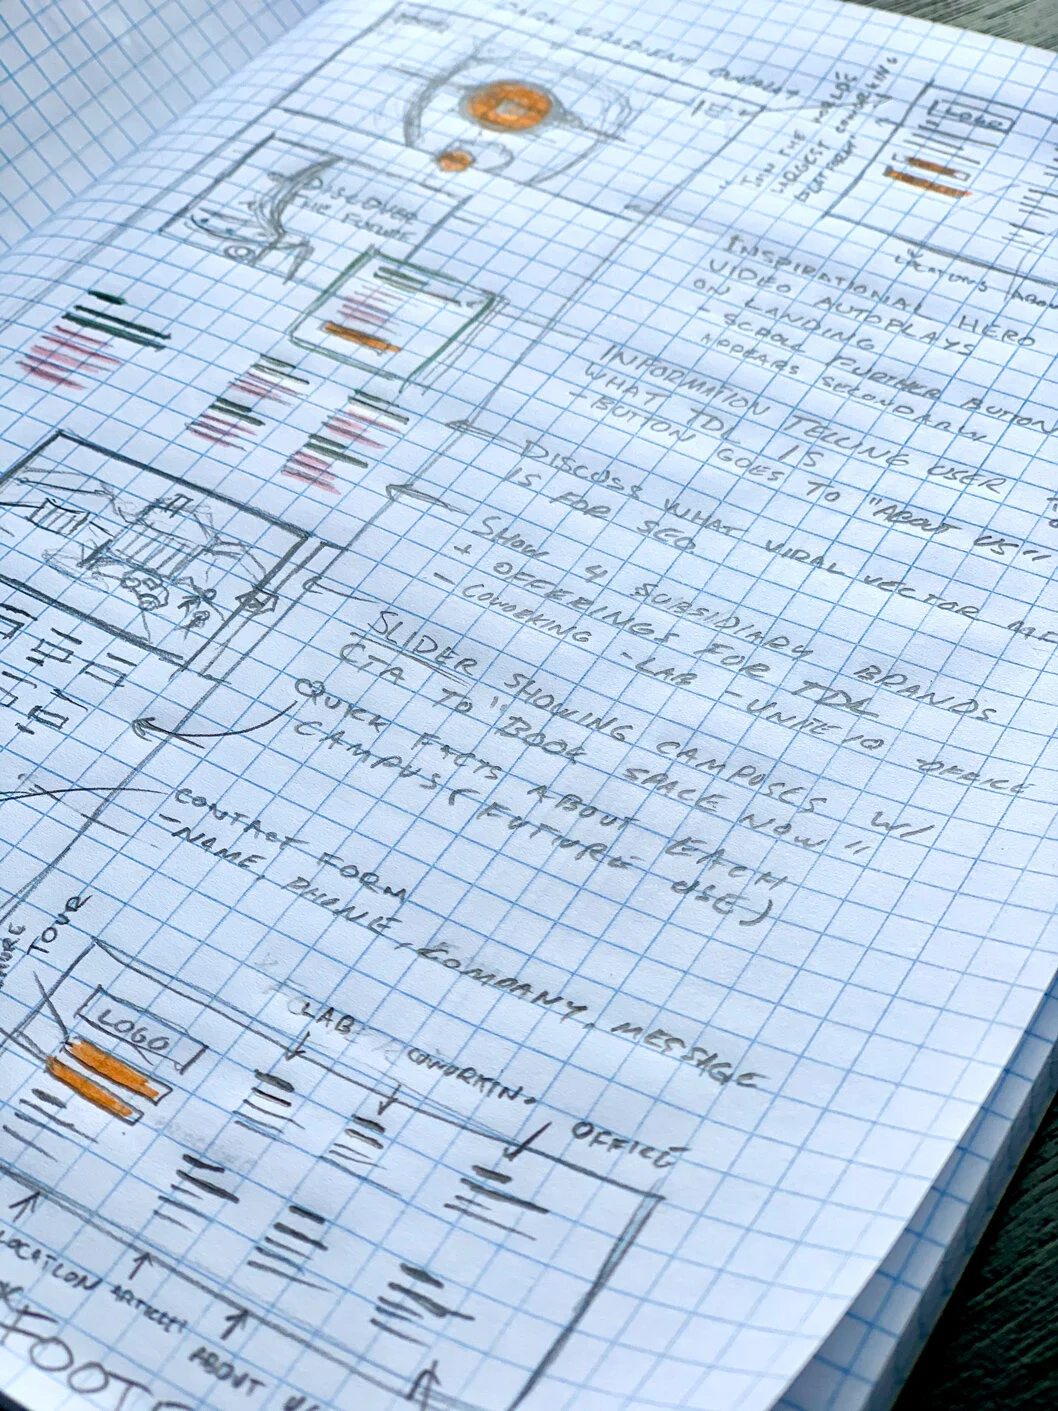 DARK GRADIENT OVERLAY
"JOIN THE WORLDS
LARGEST COWORKING
DISTRICT"
LOGO
LOCATIONS ABOU
DISCOVER
THE FUTURE
INSPIRATIONAL HERO
VIDEO AUTOPLAYS
ON LANDING
- SCROLL FURTHER BUTTON
APPEARS SECONDARY
INFORMATION TELLING USER
WHAT TDL IS
- BUTTON GOES TO "ABOUT US"
DISCUSS WHAT VIRAL VECTOR ME
IS FOR SEO
SHOW 4 SUBSIDIARY BRANDS
+ OFFERINGS FOR TDL
- COWORKING - LAB - OFFICE
SLIDER SHOWING CAMPUSES W/
CTA TO "BOOK SPACE NOW"
QUICK FACTS ABOUT EACH
CAMPUS (FUTURE USE)
CONTACT FORM
- NAME, PHONE, COMPANY, MESSAGE
TOUR
LOGO
LAB
COWORKING
OFFICE
LOCATION
ABOUT US